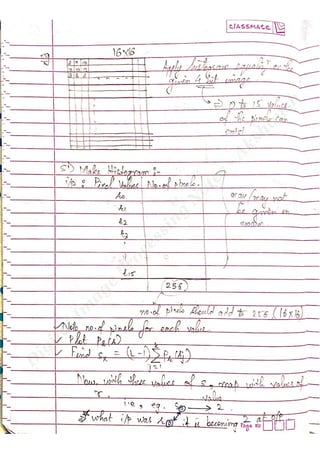 CLASSMATE
16x16
Q
Apply histogram equalizn on the
given 4 bit image
⇒ 0 to 15 values
of the pixels can
exist
S1) Make Histogram :-
i/p : Pixel Values No. of pixels.
r0
r1
r2
r3
r15
may/may not
be given in
exam
255
no. of pixels should add to 255 (16x16)
✓ Note no. of pixels for each value
✓ Plot Pr(r)
✓ Find sk = (L-1) Σ Pr(rj)
Now, with these values of s, map with values of
r.
i.e., eg. s0 → 2
value
what i/p was r0, it is becoming 2 at o/p
Page No